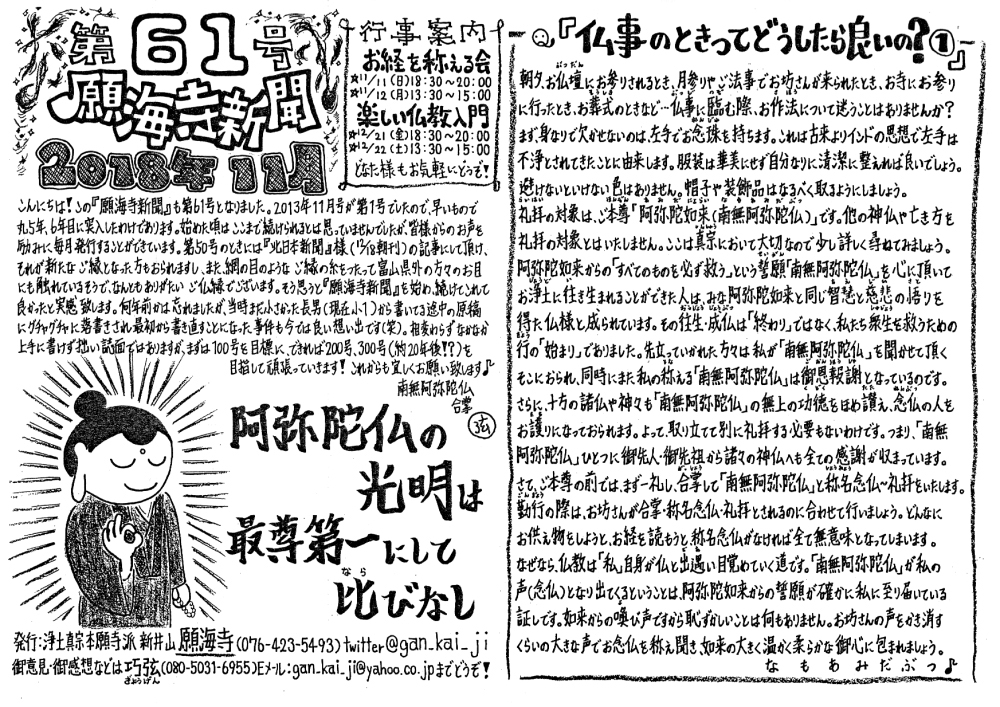 第61号
願海寺新聞
2018年11月
行事案内
お経を称える会
11/11(日)18:30~20:00
11/12(月)13:30~15:00
楽しい仏教入門
12/21(金)18:30~20:00
12/22(土)13:30~15:00
どなた様もお気軽にどうぞ!
こんにちは!この『願海寺新聞』も第61号となりました。2013年11月号が第1号でしたので、早いもので
丸5年、6年目に突入したわけであります。始めた頃はここまで続けられるとは思っていませんでしたが、皆様からのお声を
励みに毎月発行することができています。第50号のときには『北日本新聞』様(12/18朝刊)の記事にして頂け、
それが新たなご縁となった方もおられますし、また、網の目のようなご縁の糸をつたって富山県外の方々のお目
にも触れているそうで、なんともありがたいご仏縁でございます。そう思うと『願海寺新聞』を始め、続けてこれて
良かったと実感致します。何年前かは忘れましたが、当時まだ小さかった長男(現在小1)から書いてる途中の原稿
にグチャグチャに落書きされ、最初から書き直すことになった事件も今では良い想い出です(笑)。相変わらずなかなか
上手に書けず拙い誌面ではありますが、まずは100号を目標に、できれば200号、300号(約20年後!?)を
目指して頑張っていきます!これからも宜しくお願い致します♪
南無阿弥陀仏
合掌
弦
阿弥陀仏の
光明は
最尊第一にして
比びなし
なら
発行・浄土真宗本願寺派 新井山 願海寺(076-423-5493)twitter@gan_kai_ji
御意見・御感想などは巧弦(080-5031-6955)Eメール:gan_kai_ji@yahoo.co.jpまでどうぞ!
きょうげん
『仏事のときってどうしたら良いの?①』
朝夕、お仏壇にお参りされるとき、月参りやご法事でお坊さんが来られたとき、お寺にお参り
に行ったとき、お葬式のときなど…仏事に臨む際、お作法について迷うことはありませんか?
まず身なりで欠かせないのは、左手でお念珠を持ちます。これは古来よりインドの思想で左手は
不浄とされてきたことに由来します。服装は華美にせず自分なりに清潔に整えれば良いでしょう。
避けないといけない色はありません。帽子や装飾品はなるべく取るようにしましょう。
礼拝の対象は、ご本尊「阿弥陀如来(南無阿弥陀仏)」です。他の神仏や亡き方を
礼拝の対象とはいたしません。ここは真宗において大切なので少し詳しく尋ねてみましょう。
阿弥陀如来からの「すべてのものを必ず救う」という誓願「南無阿弥陀仏」を心に頂いて
お浄土に往き生まれることができた人は、みな阿弥陀如来と同じ智慧と慈悲の悟りを
得た仏様と成られています。その往生・成仏は「終わり」ではなく、私たち衆生を救うための
行の「始まり」でありました。先立っていかれた方々は私が「南無阿弥陀仏」を聞かせて頂く
そこにおられ、同時にまた私の称える「南無阿弥陀仏」は御恩報謝となっているのです。
さらに、十方の諸仏や神々も「南無阿弥陀仏」の無上の功徳をほめ讃え、念仏の人を
お護りになっておられます。よって、取り立てて別に礼拝する必要もないわけです。つまり、「南無
阿弥陀仏」ひとつに御先人・御先祖から諸々の神仏へも全ての感謝が収まっています。
さて、ご本尊の前では、まず一礼し、合掌して「南無阿弥陀仏」と称名念仏~礼拝をいたします。
勤行の際は、お坊さんが合掌・称名念仏・礼拝とされるのに合わせて行いましょう。どんなに
お供え物をしようと、お経を読もうと称名念仏がなければ全て無意味となってしまいます。
なぜなら、仏教は「私」自身が仏と出遇い目覚めていく道です。「南無阿弥陀仏」が私の
声(念仏)となり出てくるということは、阿弥陀如来からの誓願が確かに私に至り届いている
証しです。如来からの喚び声ですから恥ずかしいことは何もありません。お坊さんの声をかき消す
くらいの大きな声でお念仏を称え聞き、如来の大きく温かく柔らかな御心に包まれましょう。
なもあみだぶつ♪